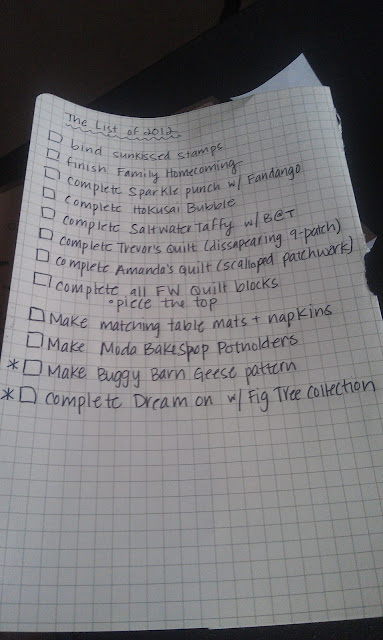 The List of 2012
□ bind sunkissed stamps
□ finish Family Homecoming
□ complete Sparkle punch w/ Fandango
□ complete Hokusai Bubble
□ complete Saltwater Taffy w/ B@T
□ complete Trevor's Quilt (dissapearing 9-patch)
□ complete Amanda's quilt (scalloped patchwork)
□ complete all FW Quilt blocks
• piece the top
□ Make matching table mats + napkins
□ Make Moda Bakeshop Potholders
* □ Make Buggy Barn Geese pattern
* □ complete Dream on w/ Fig Tree collection